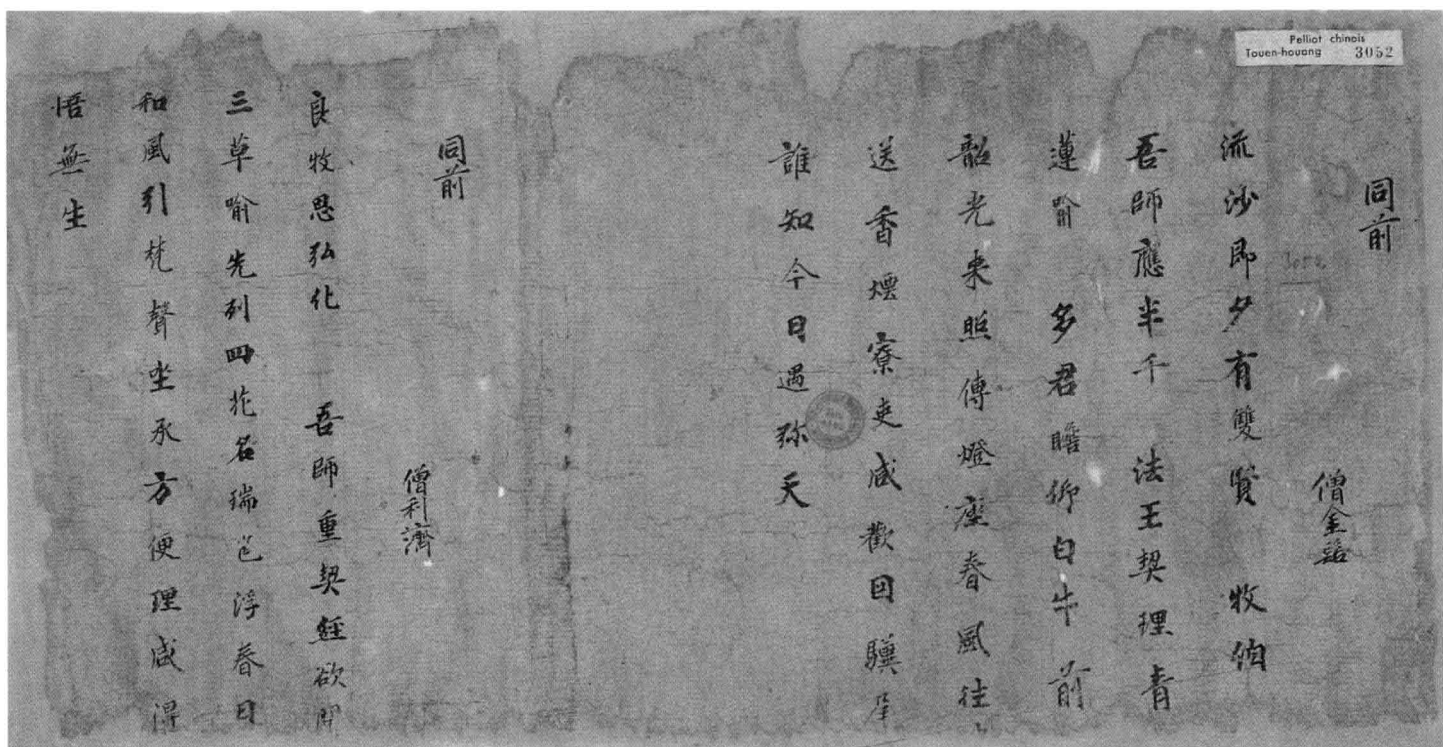 Pelliot chinois
Touen-houang 3052
同前
僧金髻
流沙即夕有雙賢 牧伯
吾師應半千 法王契理青
蓮喻 多君瞻仰白牛前
韶光来照傳燈座春風往々
送香煙寮吏咸歡因驥尾
誰知今日遇弥天
同前
僧利濟
良牧思弘化 吾師重契經欲開
三草喻先列四花名瑞色浮春日
和風引梵聲坐承方便理咸得
悟無生